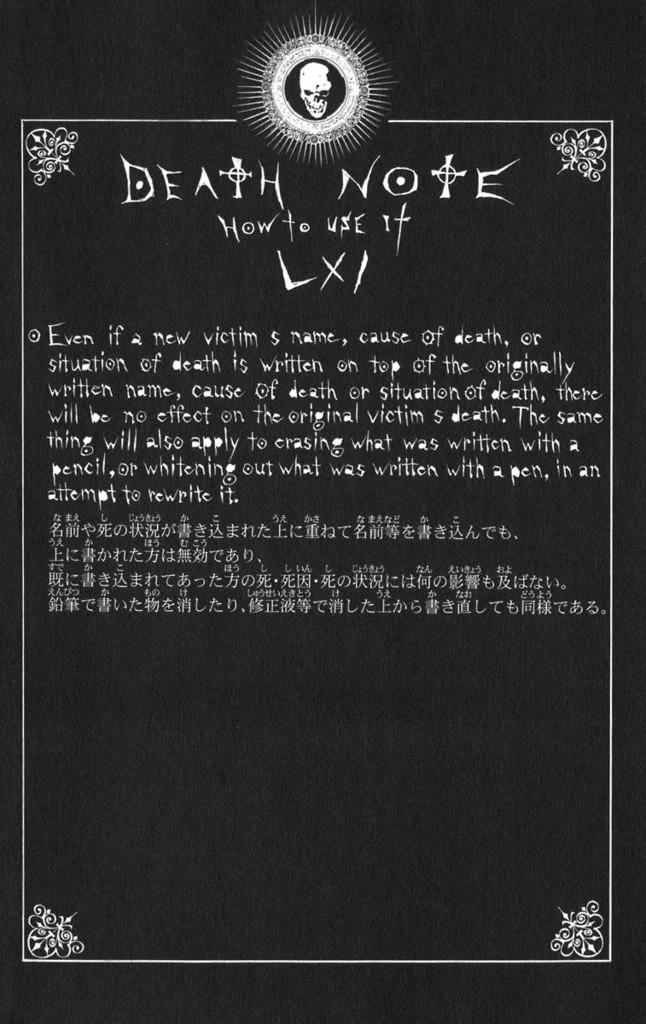 DEATH NOTE
How to use it
LXI
Even if a new victim s name, cause of death, or
situation of death is written on top of the originally
written name, cause of death or situation of death, there
will be no effect on the original victim s death. The same
thing will also apply to erasing what was written with a
pencil, or whitening out what was written with a pen, in an
attempt to rewrite it.
なまえ し じょうきょう か こ うえ かさ なまえなど か こ
名前や死の状況が書き込まれた上に重ねて名前等を書き込んでも、
うえ か ほう むこう
上に書かれた方は無効であり、
すで か こ ほう し しいん し じょうきょう なん えいきょう およ
既に書き込まれてあった方の死・死因・死の状況には何の影響も及ばない。
えんぴつ か もの け しゅうせいえきとう け うえ か なお どうよう
鉛筆で書いた物を消したり、修正液等で消した上から書き直しても同様である。